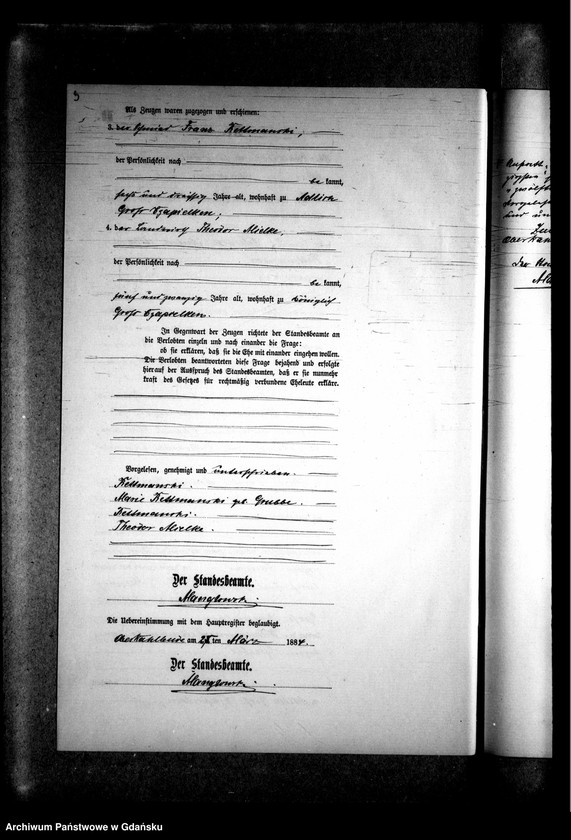 Als Zeugen waren zugezogen und erschienen:
3. der Franz Kettmanski,
der Persönlichkeit nach
be kannt,
sechs und dreißig Jahre alt, wohnhaft zu Adlich
Groß Czapielken;
4. der Theodor Mielke,
der Persönlichkeit nach
be kannt,
fünf und zwanzig Jahre alt, wohnhaft zu Königlich
Groß Czapielken.
In Gegenwart der Zeugen richtete der Standesbeamte an
die Verlobten einzeln und nach einander die Frage:
ob sie erklären, daß sie die Ehe mit einander eingehen wollen.
Die Verlobten beantworteten diese Frage bejahend und erfolgte
hierauf der Ausspruch des Standesbeamten, daß er sie nunmehr
kraft des Gesetzes für rechtmäßig verbundene Eheleute erkläre.
Vorgelesen, genehmigt und unterschrieben.
Kettmanski.
Marie Kettmanski geb. Grubbe.
Kettmanski.
Theodor Mielke.
Der Standesbeamte.
Die Uebereinstimmung mit dem Hauptregister beglaubigt.
am ten März 1884.
Der Standesbeamte.
Archiwum Państwowe w Gdańsku